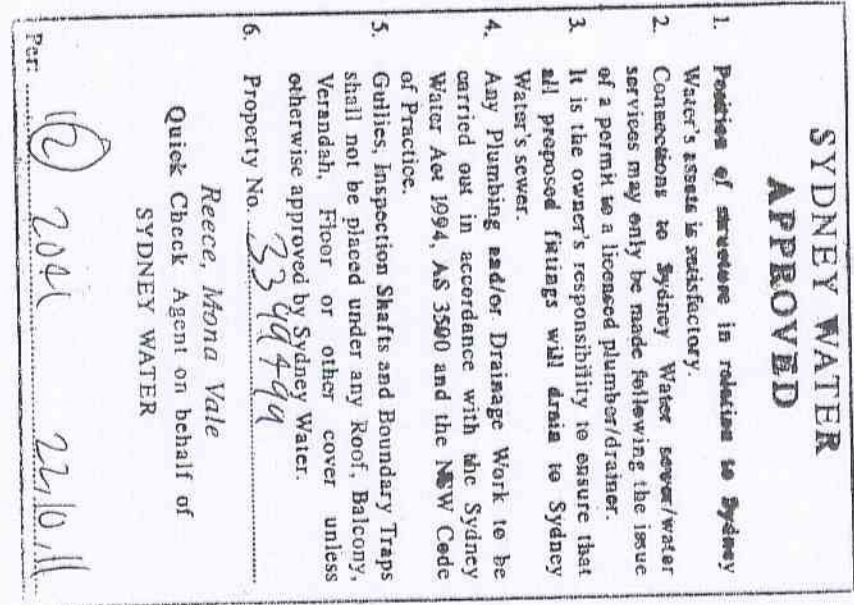 SYDNEY WATER
APPROVED
1. Position of structure in relation to Sydney
Water's assets is satisfactory.
2. Connections to Sydney Water sewer/water
services may only be made following the issue
of a permit to a licensed plumber/drainer.
3. It is the owner's responsibility to ensure that
all proposed fittings will drain to Sydney
Water's sewer.
4. Any Plumbing and/or Drainage Work to be
carried out in accordance with the Sydney
Water Act 1994, AS 3500 and the NSW Code
of Practice.
5. Gullies, Inspection Shafts and Boundary Traps
shall not be placed under any Roof, Balcony,
Verandah, Floor or other cover unless
otherwise approved by Sydney Water.
6. Property No. 3399499
Reece, Mona Vale
Quick Check Agent on behalf of
SYDNEY WATER
Per: